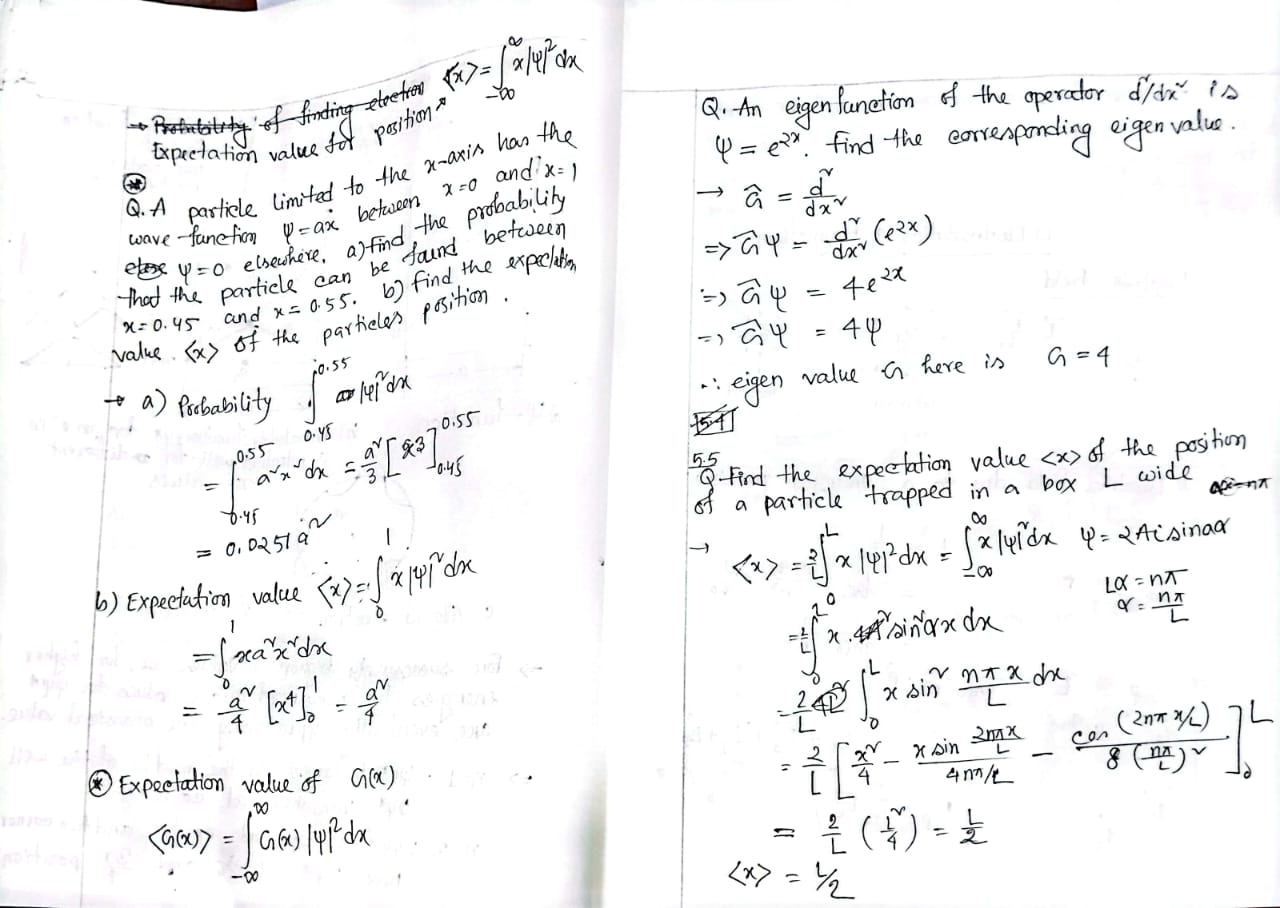 → Probability of finding electron <x> = ∫_{-∞}^{∞} x|ψ|² dx
Expectation value for position
⊛
Q. A particle limited to the x-axis has the
wave-function ψ=ax between x=0 and x=1
else ψ=0 elsewhere. a) find the probability
that the particle can be found between
x=0.45 and x=0.55. b) find the expectation
value <x> of the particles position.
→ a) Probability ∫_{0.45}^{0.55} |ψ|² dx
= ∫_{0.45}^{0.55} a² x² dx = a²/3 [x3]_{0.45}^{0.55}
= 0.0251 a²
b) Expectation value <x> = ∫_0^1 x|ψ|² dx
= ∫_0^1 xa²x² dx
= a²/4 [x⁴]_0^1 = a²/4
⊛ Expectation value of G(x)
<G(x)> = ∫_{-∞}^{∞} G(x) |ψ|² dx
Q. An eigenfunction of the operator d²/dx² is
ψ = e^{2x}. find the corresponding eigen value.
→ Ĝ = d²/dx²
=> Ĝψ = d²/dx² (e^{2x})
=> Ĝψ = 4e^{2x}
=> Ĝψ = 4ψ
∴ eigen value G here is G = 4
5.4
5.5
Q find the expectation value <x> of the position
of a particle trapped in a box L wide
→ <x> = 2/L ∫_0^L x|ψ|² dx = ∫_{-∞}^{∞} x|ψ|² dx ψ = 2Ai sinαx
Lα = nπ
α = nπ/L
∫_0^L x . sin²αx dx
= 2/L ∫_0^L x sin² nπx/L dx
= 2/L [x²/4 - x sin 2nπx/L / 4nπ/L - cos(2nπx/L) / 8(nπ/L)²]_0^L
= 2/L (L²/4) = L/2
<x> = L/2